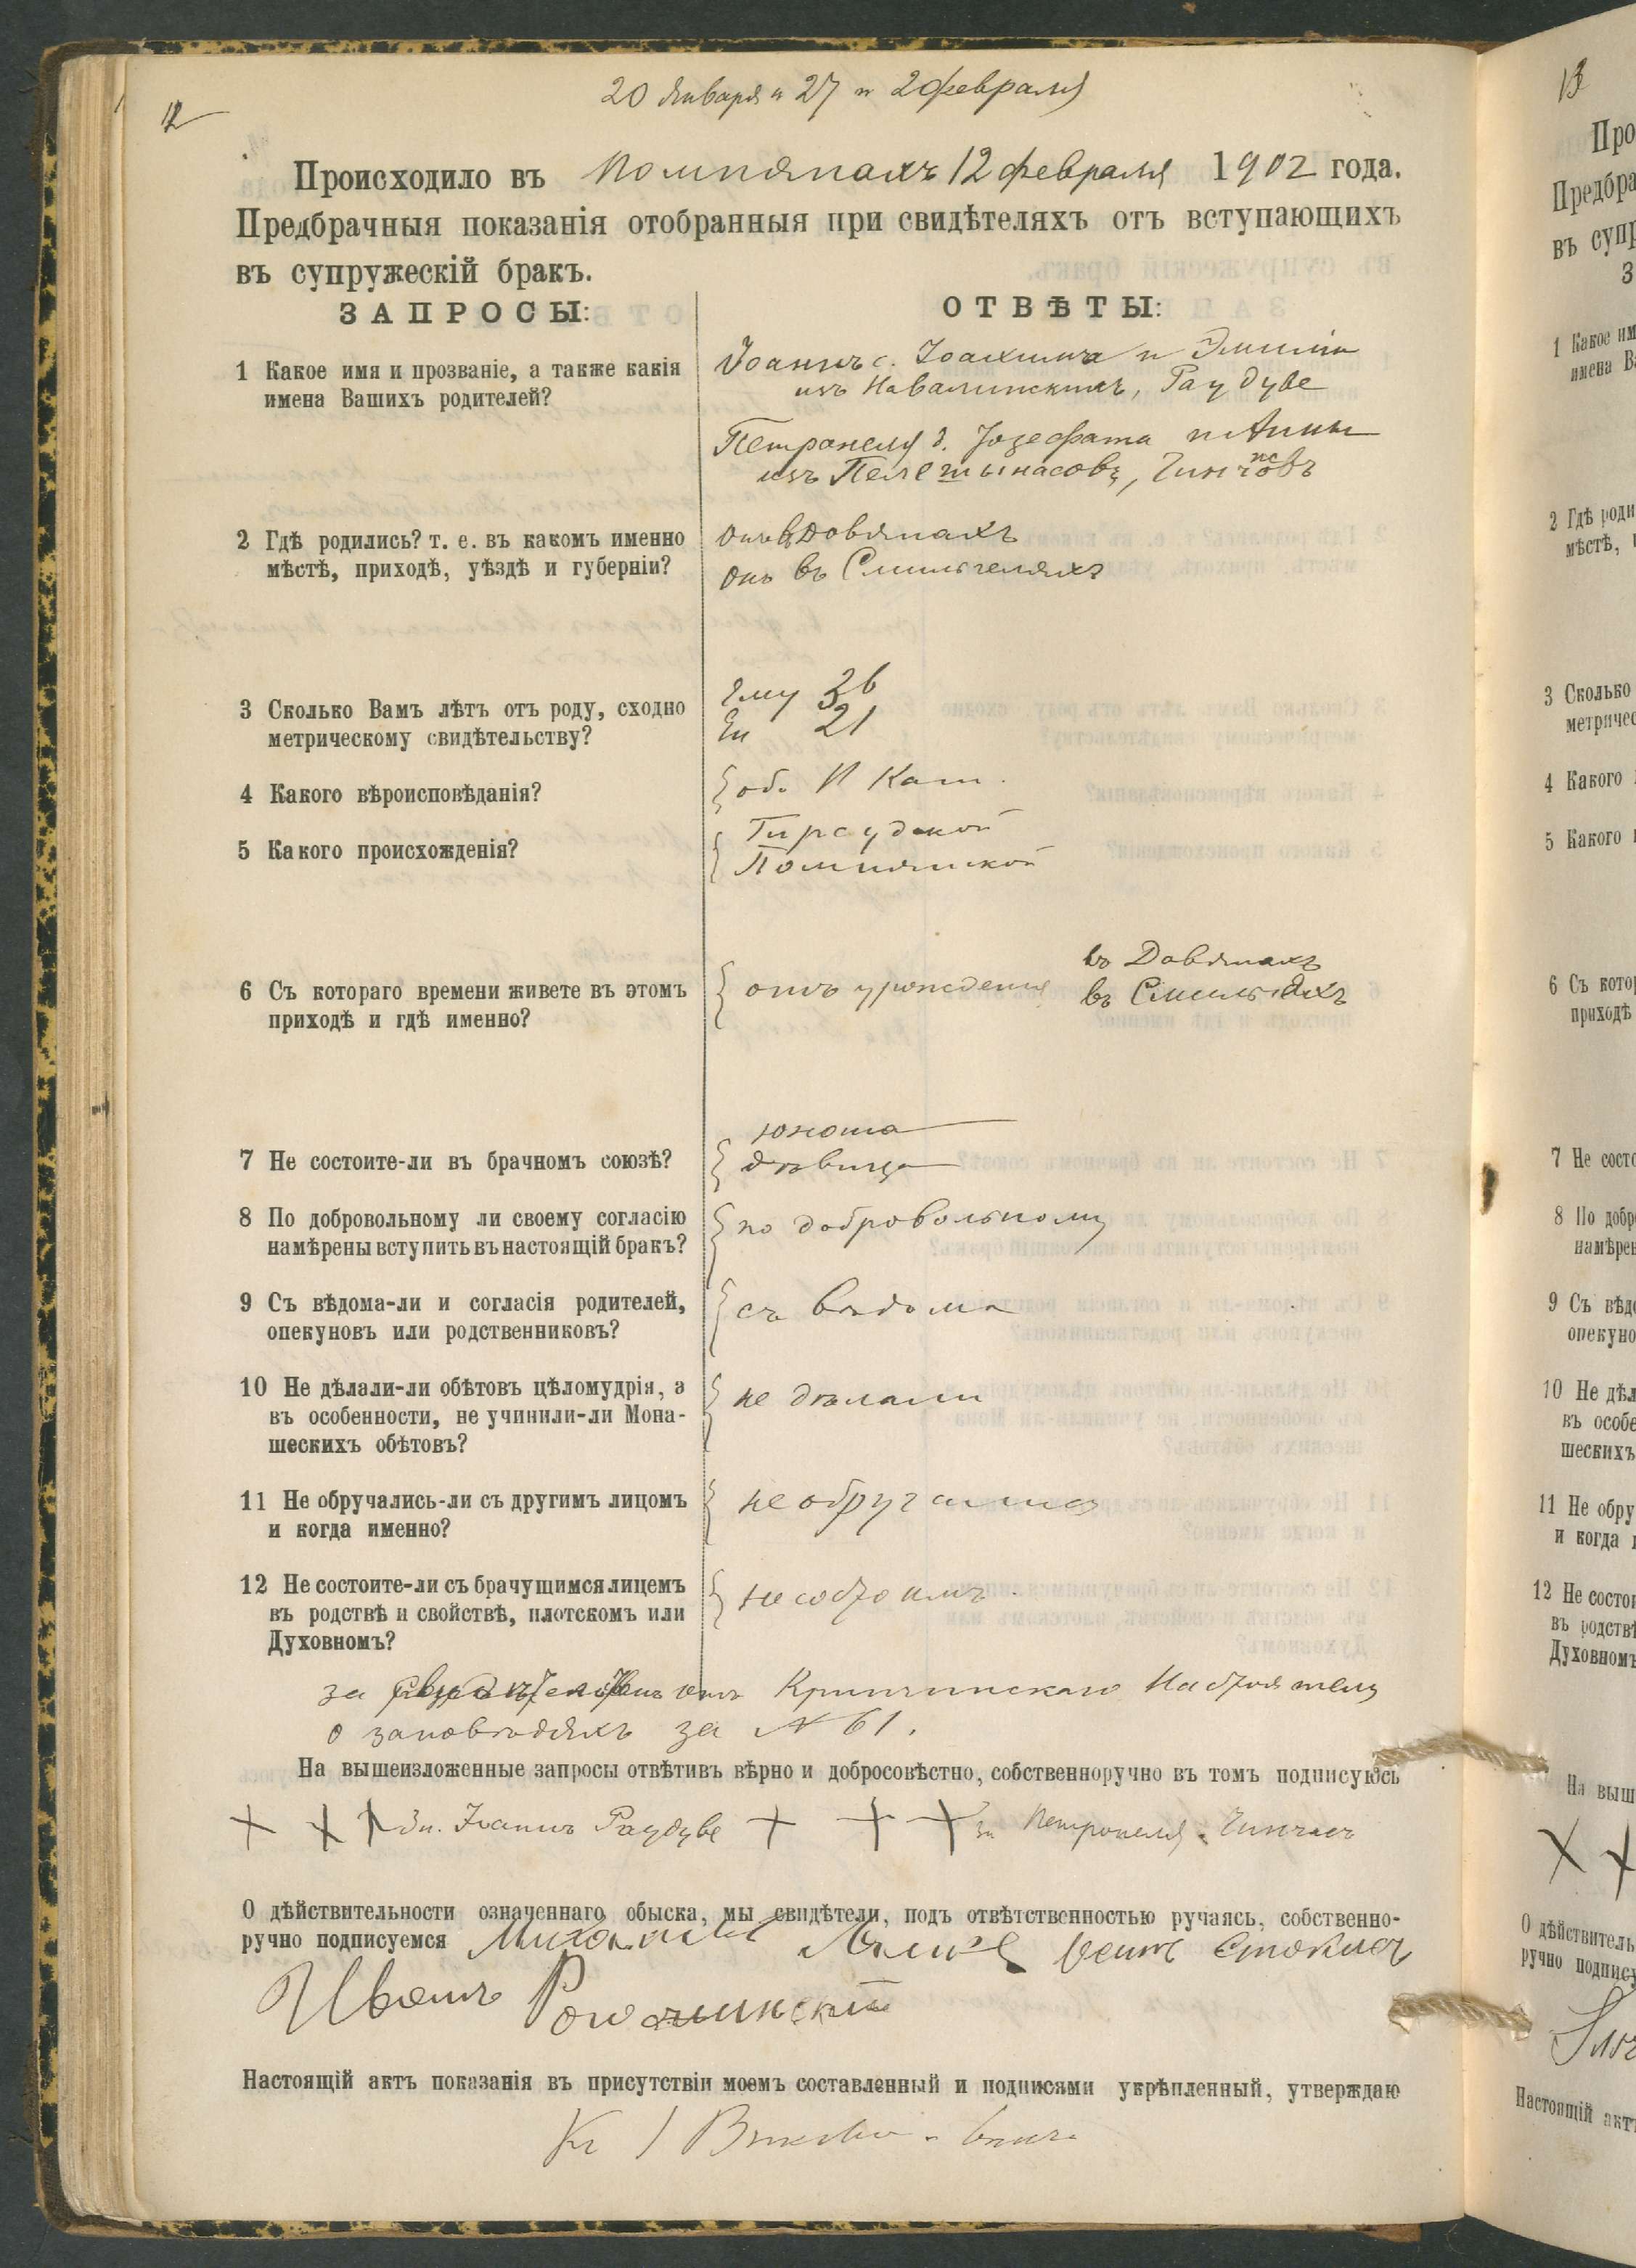 20 Января и 27 и 2 февраля
12
Происходило въ Помпянахъ 12 февраля 1902 года.
Предбрачныя показанія отобранныя при свидѣтеляхъ отъ вступающихъ
въ супружескій бракъ.
ЗАПРОСЫ:
ОТВѢТЫ:
1 Какое имя и прозваніе, а также какія
имена Вашихъ родителей?
Іоаннъ с. Іоахима и Эмиліи
изъ Навалинскихъ, Раудуве
Петронеля д. Іозефата и Анны
изъ
2 Гдѣ родились? т. е. въ какомъ именно
мѣстѣ, приходѣ, уѣздѣ и губерніи?
онъ въ Довянахъ
она въ Смильгеляхъ
3 Сколько Вамъ лѣтъ отъ роду, сходно
метрическому свидѣтельству?
Ему 36
Ей 21
4 Какого вѣроисповѣданія?
об. Р Кат.
5 Какого происхожденія?
Гирсудской
Помпянской
6 Съ котораго времени живете въ этомъ
приходѣ и гдѣ именно?
отъ урожденія
въ Довянахъ
въ
7 Не состоите-ли въ брачномъ союзѣ?
юноша
дѣвица
8 По добровольному ли своему согласію
намѣрены вступить въ настоящій бракъ?
по добровольному
9 Съ вѣдома-ли и согласія родителей,
опекуновъ или родственниковъ?
съ вѣдома
10 Не дѣлали-ли обѣтовъ цѣломудрія, а
въ особенности, не учинили-ли Мона-
шескихъ обѣтовъ?
не дѣлали
11 Не обручались-ли съ другимъ лицомъ
и когда именно?
не обручались
12 Не состоите-ли съ брачущимся лицемъ
въ родствѣ и свойствѣ, плотскомъ или
Духовномъ?
не состоимъ
за отъ Криничинскаго Настоятеля
о заповѣдяхъ за № 61.
На вышеизложенные запросы отвѣтивъ вѣрно и добросовѣстно, собственноручно въ томъ подписуюсь
+ + + за Іоаннъ Раудуве + + + за Петронеля Чинчасъ
О дѣйствительности означеннаго обыска, мы свидѣтели, подъ отвѣтственностью ручаясь, собственно-
ручно подписуемся
Иванъ
Настоящій актъ показанія въ присутствіи моемъ составленный и подписями укрѣпленный, утверждаю
13
Про
Предбра
въ супр
З
1 Какое им
имена В
2 Гдѣ роди
мѣстѣ,
3 Сколько
метричес
4 Какого
5 Какого
6 Съ кото
приходѣ
7 Не сост
8 По добр
намѣрен
9 Съ вѣд
опекуно
10 Не дѣл
въ особе
шескихъ
11 Не обру
и когда
12 Не состо
въ родств
Духовном
На выш
О дѣйствитель
ручно подпису
Настоящій акт